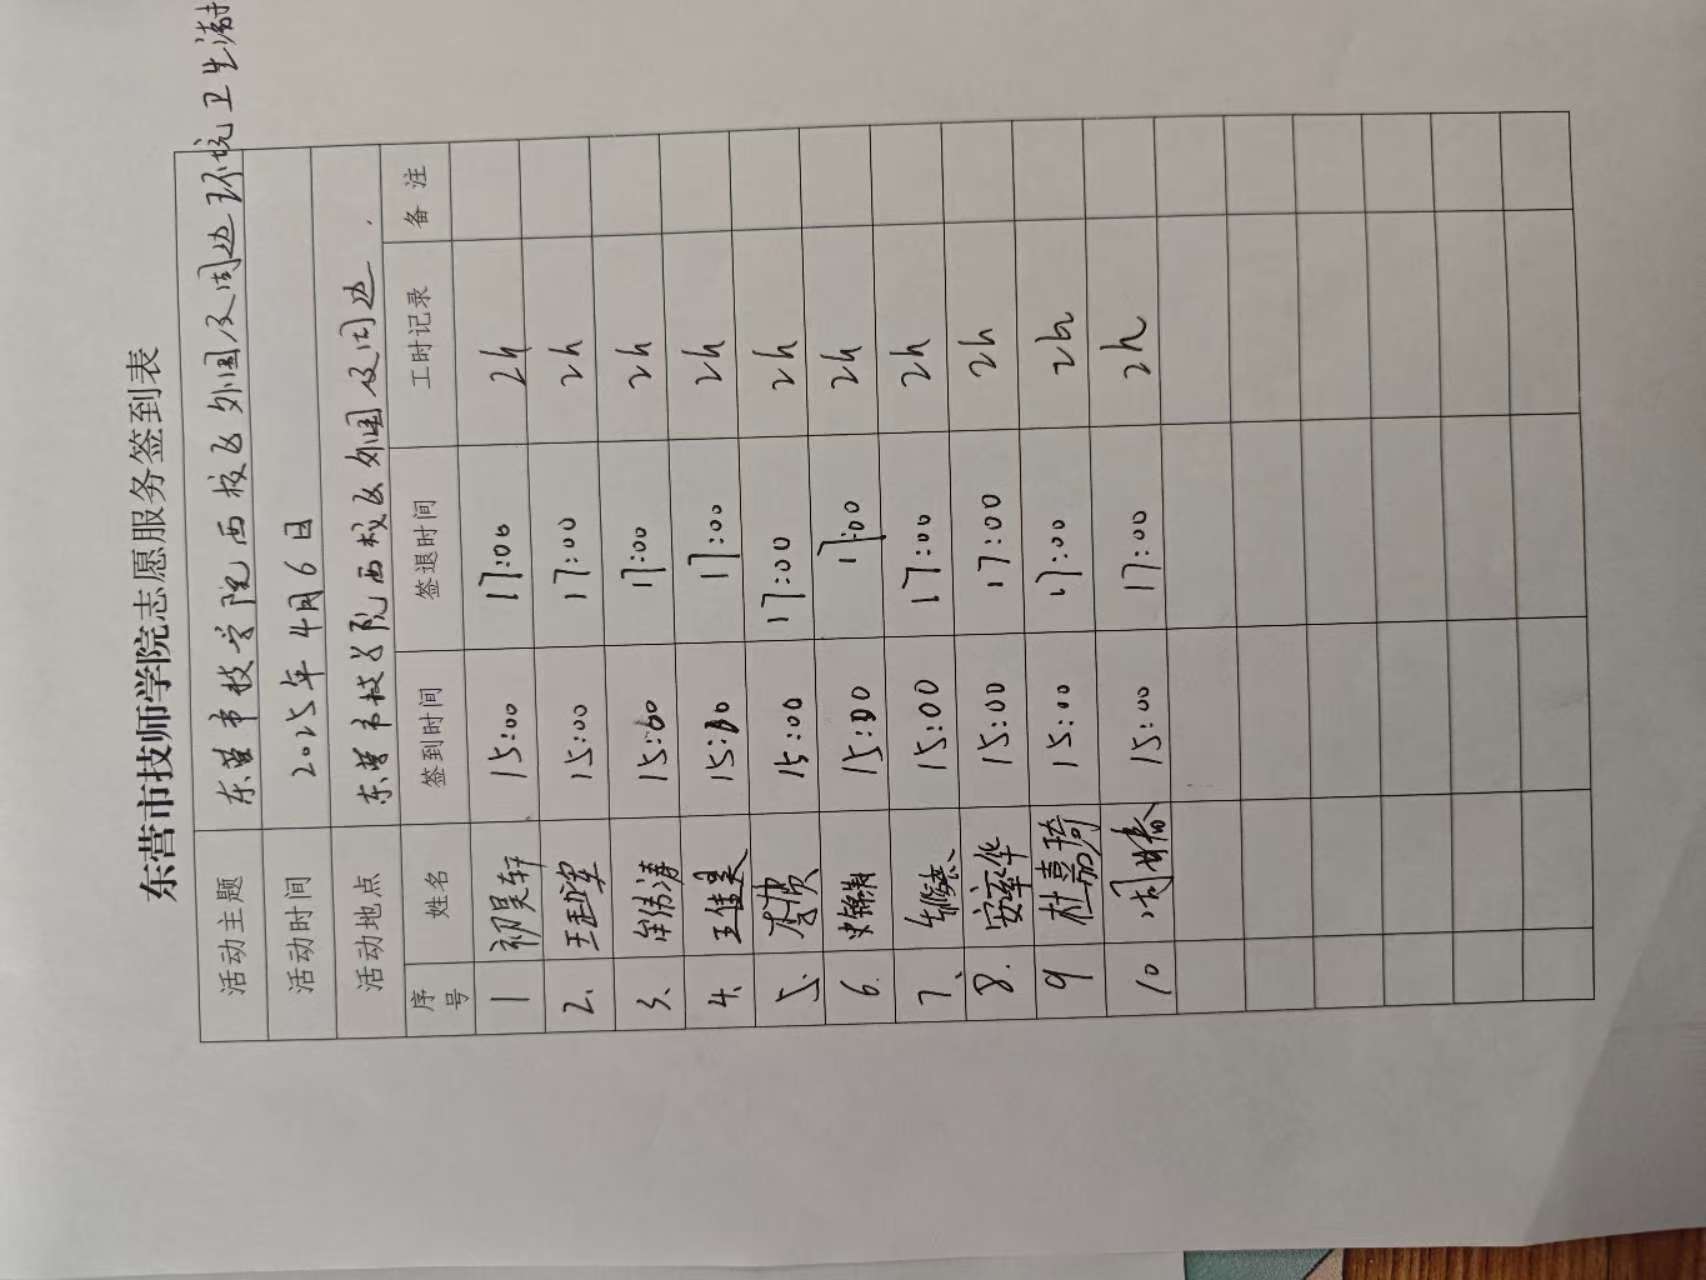 东营市技师学院志愿服务签到表
活动主题 东营市技学院西校区外围及周边环境卫生
活动时间 2025年4月6日
活动地点 东营市技师学院西校区外围及周边
序号 姓名 签到时间 签退时间 工时记录 备注
1 祁昊轩 15:00 17:00 2h
2、 15:00 17:00 2h
3、 15:00 17:00 2h
4、 王佳昊 15:00 17:00 2h
5、 15:00 17:00 2h
6. 15:00 17:00 2h
7、 15:00 17:00 2h
8. 15:00 17:00 2h
9 杜嘉琦 15:00 17:00 2h
10 15:00 17:00 2h